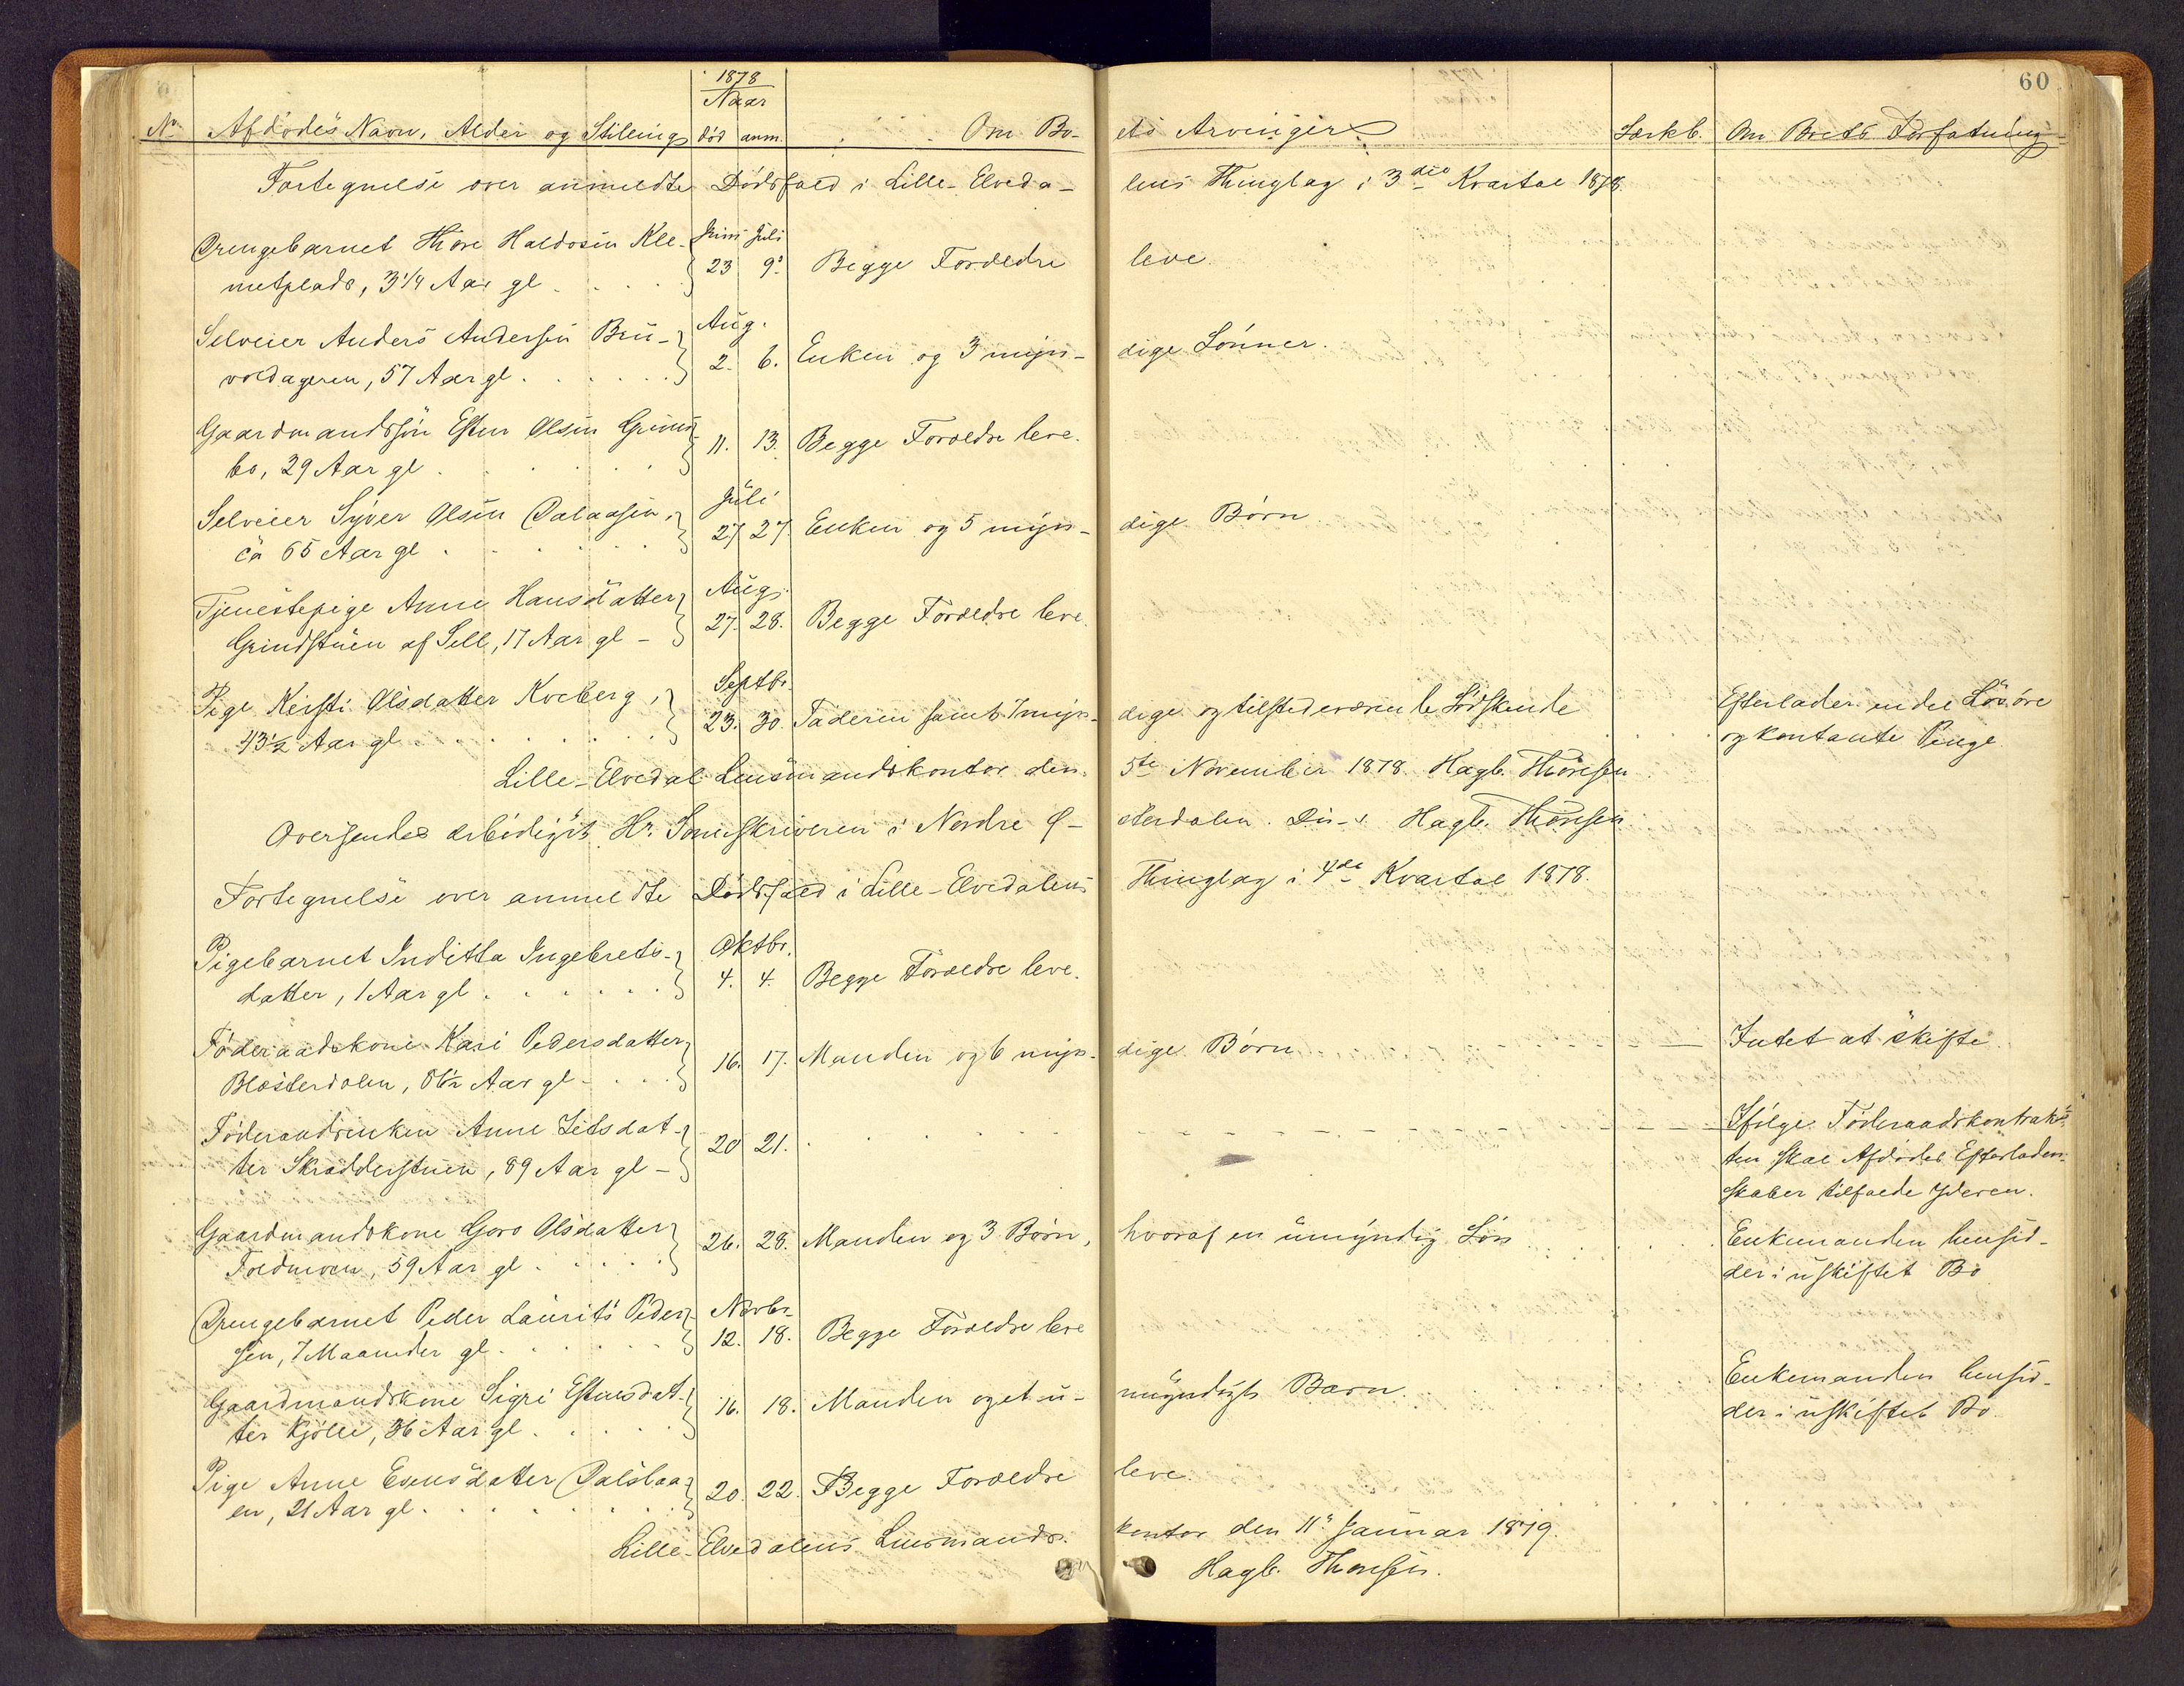 60
1878
Naar
No Afdødes Navn, Alder og Stilling død anm. Om Bo- ets Arvinger Særkb. Om Boets Forfatning
Fortegnelse over anmeldte Dødsfald i Lille-Elveda- lens Thinglag i 3die Kvartal 1878.
Drengebarnet Thore Haldosen Kle- Juni Juli
metplads, 3 1/4 Aar gl 23 9. Begge Forældre leve.
Selveier Anders Andersen Bru- Aug.
voldageren, 57 Aar gl. 2. 6. Enken og 3 myn- dige Sønner.
Gaardmandssøn Esten Olsen Grim-
bo, 29 Aar gl. 11. 13. Begge Forældre leve.
Selveier Syver Olsen Dalaasen, Juli
ca 65 Aar gl. 27 27. Enken og 5 myn- dige Børn
Tjenestepige Anne Hansdatter Aug.
Grindstuen af Sell, 17 Aar gl - 27. 28. Begge Forældre leve.
Pige Kersti Olsdatter Kveberg, Septbr.
43 1/2 Aar gl. 23. 30. Faderen samt 7 myn- dige og tilstedeværende Sødskende Efterlader endel Løsøre
og kontante Penge.
Lille-Elvedal Lensmandskontor den 5te November 1878. Hagb. Thoresen
Oversendes ærbødigst Hr. Sorenskriveren i Nordre Ø- sterdalen. D.u.s. Hagb. Thoresen
Fortegnelse over anmeldte Dødsfald i Lille-Elvedalens Thinglag i 4de Kvartal 1878.
Pigebarnet Inditta Ingebrets- Oktbr.
datter, 1 Aar gl. 4. 4. Begge Forældre leve.
Føderaadskone Kari Pedersdatter
Blæsterdalen, 86 1/2 Aar gl. 16. 17. Manden og 6 myn- dige Børn Intet at skifte.
Føderaadsenken Anne Zetsdat-
ter Skrædderstuen, 89 Aar gl - 20 21. Ifølge Føderaadskontrak-
ten skal Afdødes Efterladen-
skaber tilfalde Yderen.
Gaardmandskone Goro Olsdatter
Foldmoen, 59 Aar gl. 26. 28. Manden og 3 Børn, hvoraf en umyndig Søn Enkemanden hensid-
der i uskiftet Bo
Drengebarnet Peder Laurits Peder- Novbr.
sen, 7 Maaneder gl. 12. 18. Begge Forældre leve
Gaardmandskone Sigri Estensdat-
ter Kjølli, 36 Aar gl. 16. 18. Manden og et u- myndigt Barn. Enkemanden hensid-
der i uskiftet Bo
Pige Anne Esensdatter Dalsbaa-
en, 21 Aar gl. 20. 22. Begge Forældre leve.
Lille-Elvedalens Lensmands- kontor den 11. Januar 1879.
Hagb. Thoresen.